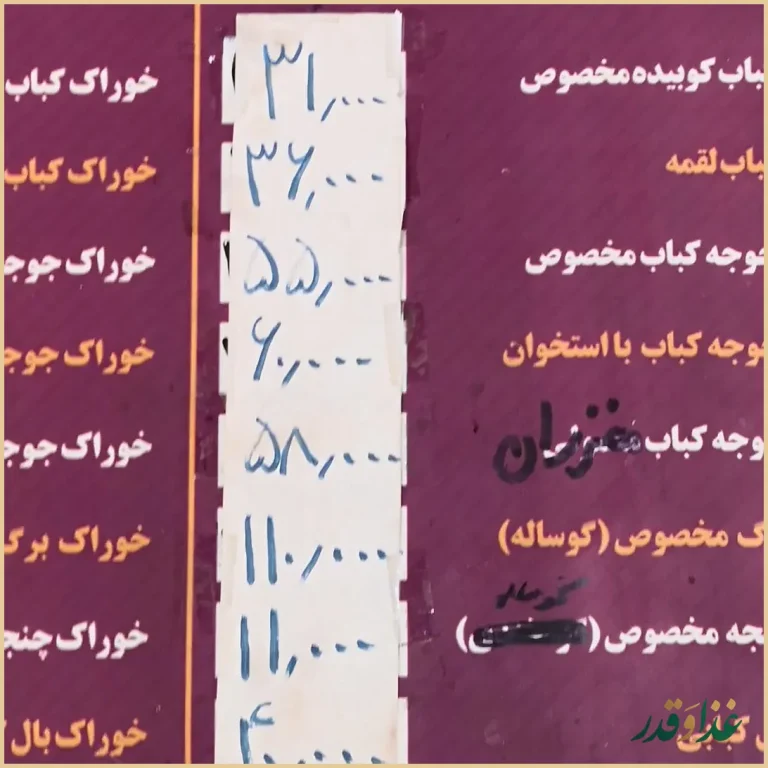 باب کوبیده مخصوص ۳۱,۰۰۰ خوراک کباب
باب لقمه ۳۶,۰۰۰ خوراک کباب
وجه کباب مخصوص ۵۵,۰۰۰ خوراک جوج
وجه کباب با استخوان ۶۰,۰۰۰ خوراک جوج
وجه کباب مغز ران ۵۸,۰۰۰ خوراک جوج
گ مخصوص (گوساله) ۱۱۰,۰۰۰ خوراک برگ
گوساله
نجه مخصوص ۱۱,۰۰۰ خوراک چنج
۴۰,۰۰۰ خوراک بال
غذا و قدر